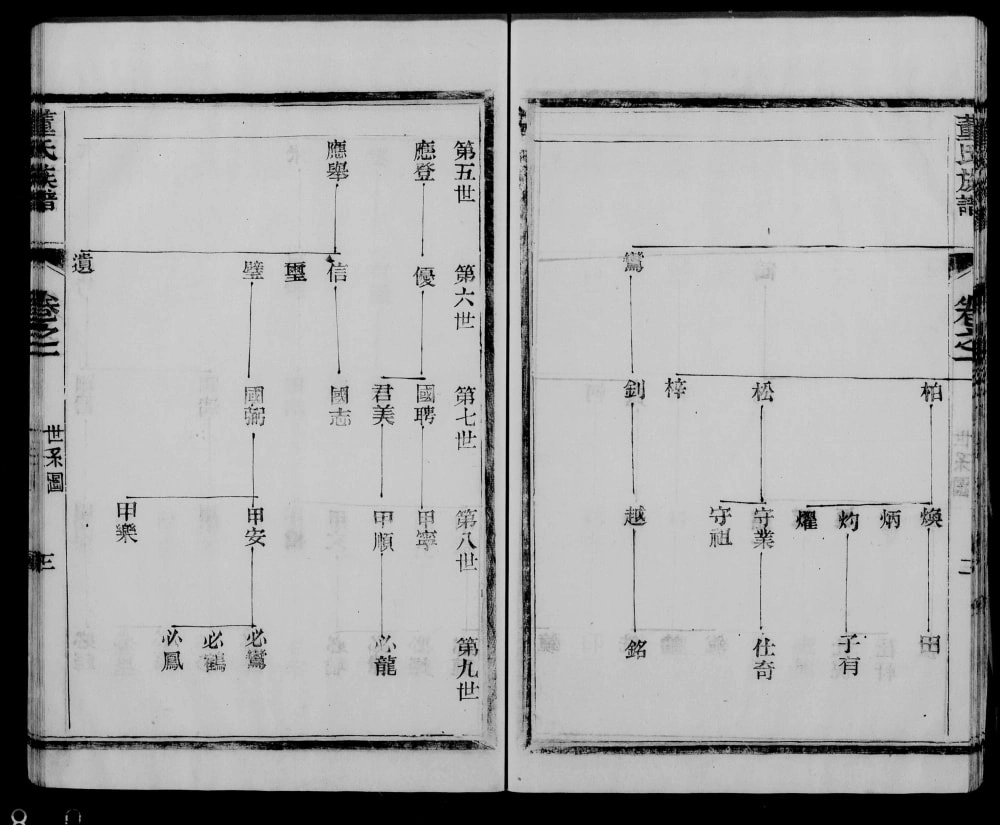 董氏族譜
卷之一
二
鸞
柏
松
梓
釗
煥
炳
灼
燿
守業
守祖
越
田
子有
仕奇
銘
第五世
應登
應舉
第六世
優
信
璽
璧
遺
第七世
國聘
君美
國志
國弼
第八世
甲寧
甲順
甲安
甲樂
第九世
必龍
必鸞
必鶴
必鳳
董氏族譜
卷之一
世系圖
三